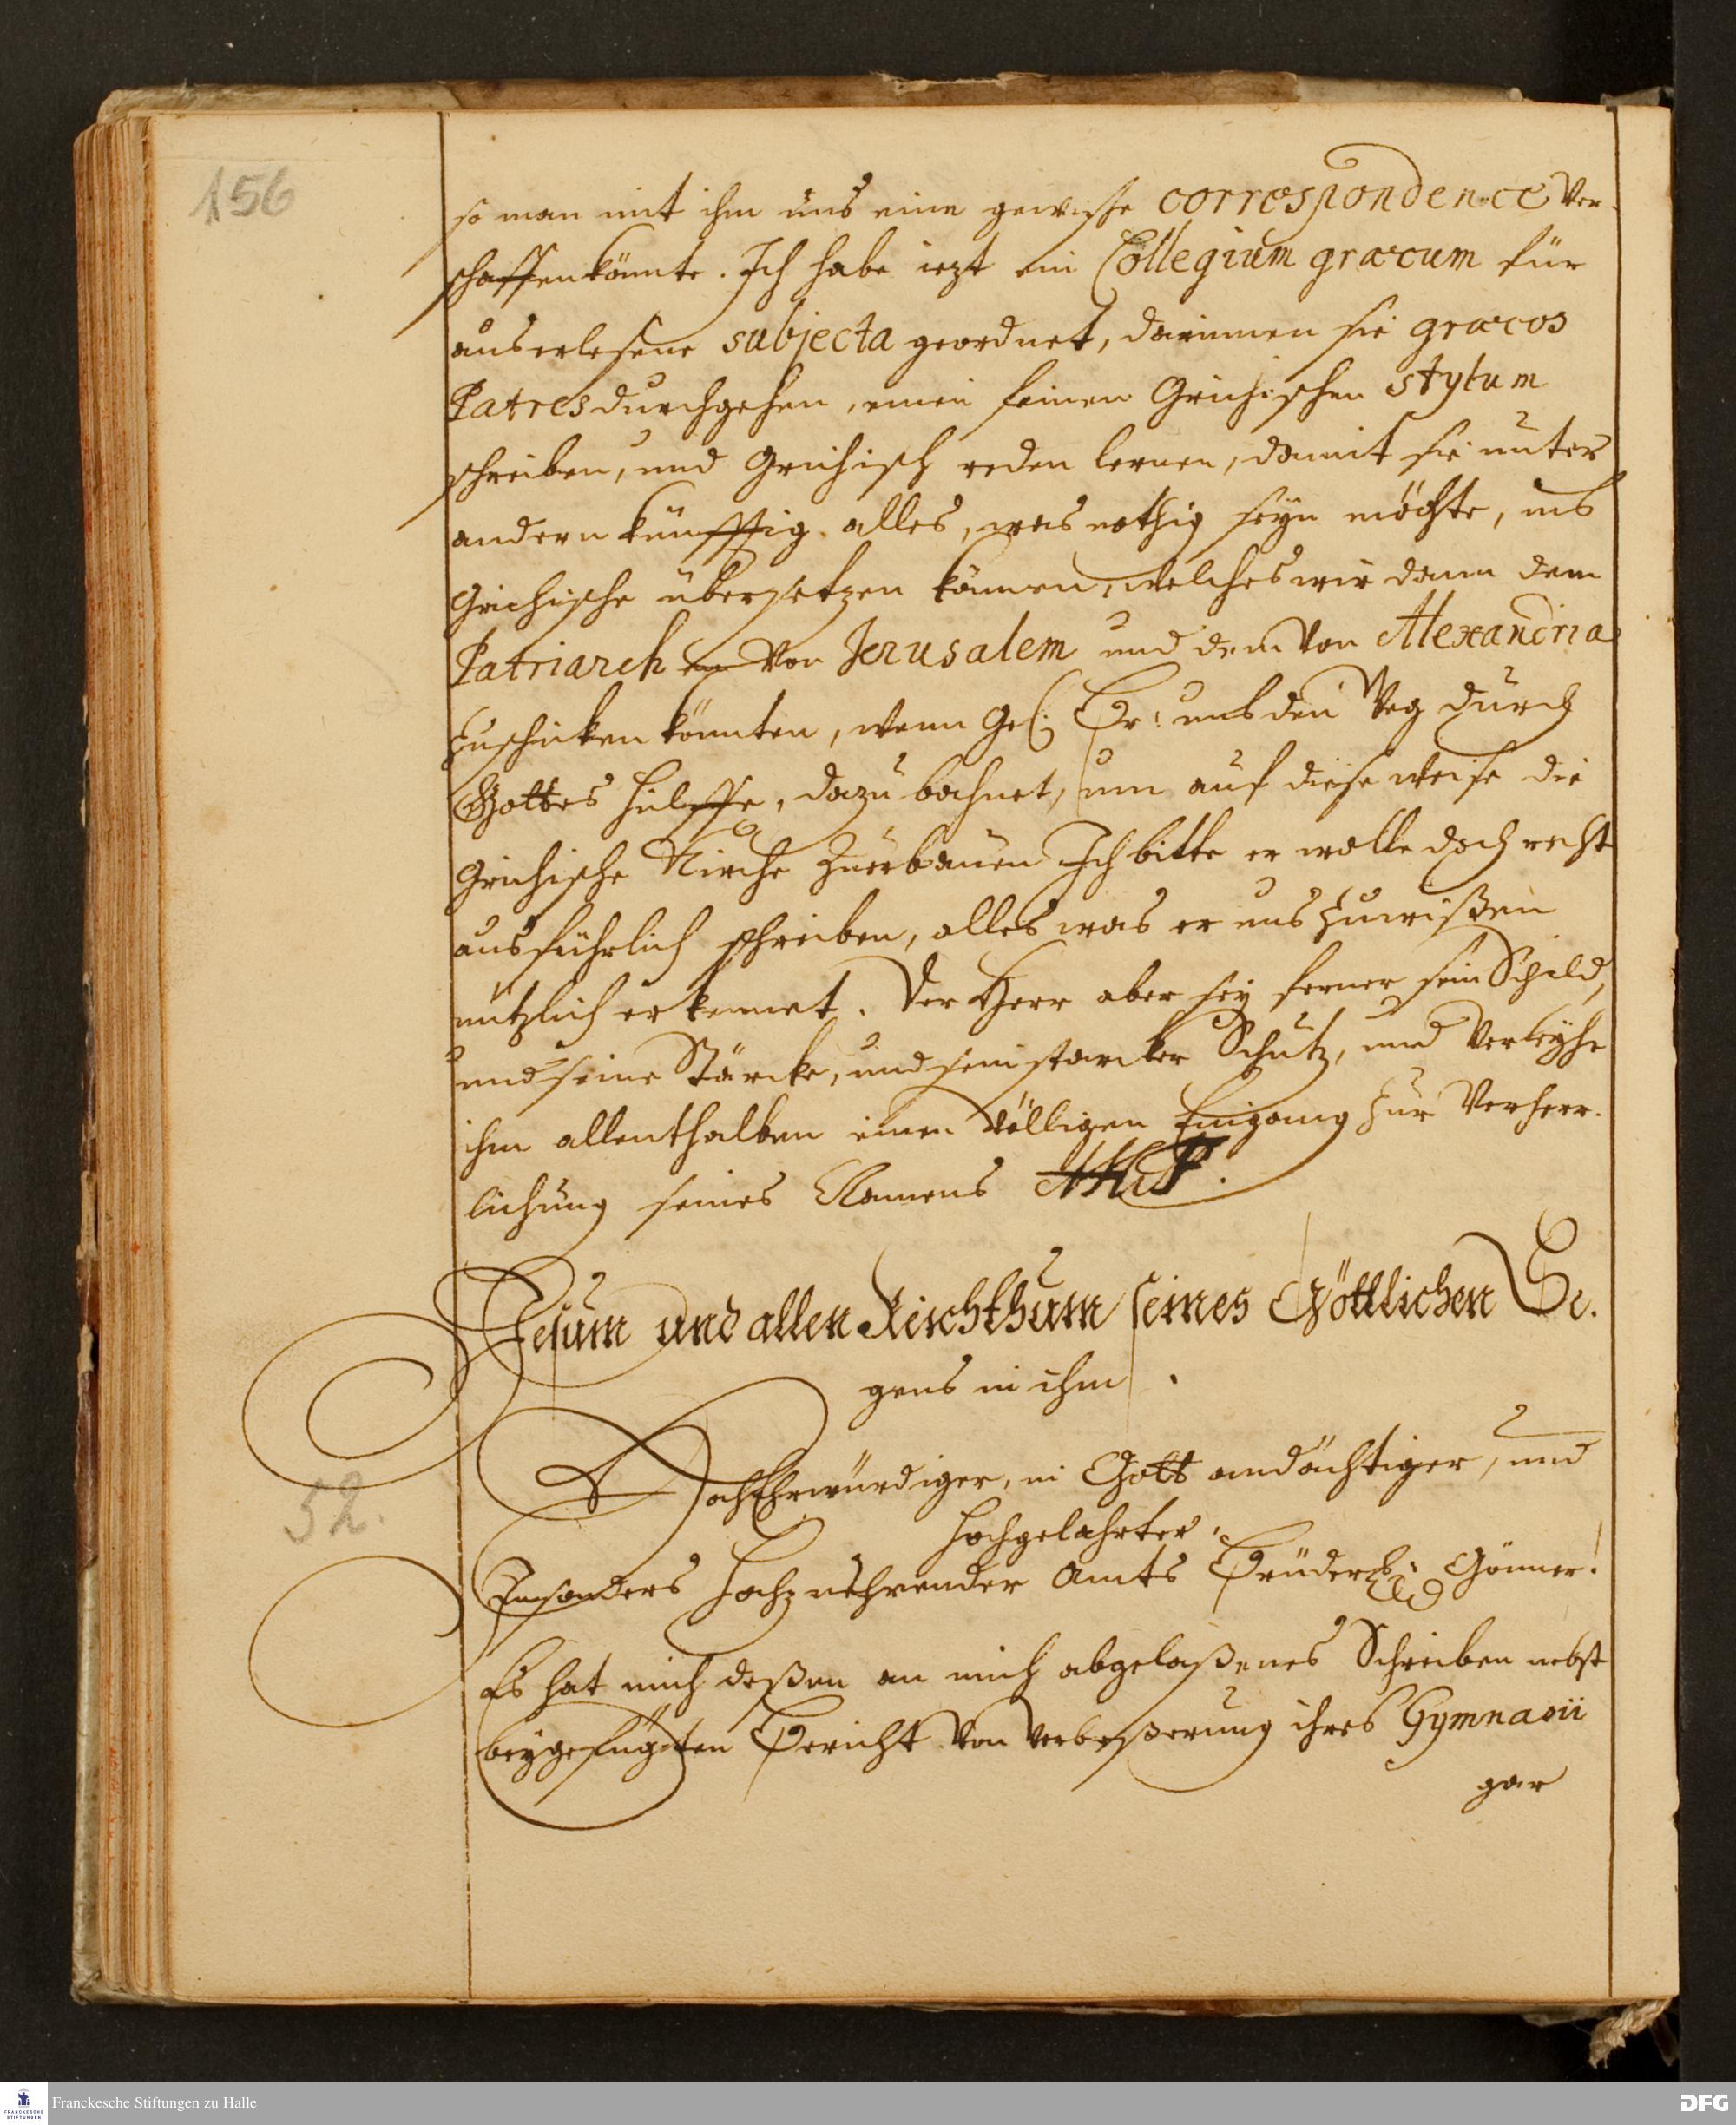 156
so man mit ihm uns eine gewisse correspondence ver-
schaffen könnte. Ich habe iezt ein Collegium graecum für
auserlesene subjecta geordnet, darinnen sie graecos
Patres durchgehen, einen feinen Grichischen stylum
schreiben, und Grichisch reden lernen, damit sie unter
andern künfftig alles, was nothig seyn möchte, ins
Grichische übersetzen können, welches wir dann dem
Patriarchen von Jerusalem und dem von Alexandria
zuschicken könnten, wenn Gel. Br: uns den Weg durch
Gottes Hülffe, dazu bahnet, um auf diese weise die
Grichische Kirche zuerbauen Ich bitte er wolle doch recht
ausführlich schreiben, alles was er uns zuwißen
nützlich erkennet. Der Herr aber sey ferner sein Schild,
und seine Stärcke, und sein starcker Schutz, und verleyhe
ihm allenthalben einen völligen Eingang zur Verherr-
lichung seines Namens
Jesum und allen Reichthum seines Göttlichen Se-
gens in ihm.
52.
HochEhrwürdiger, in Gott andächtiger, und
Hochgelahrter,
Insonders Hochzuehrender Amts Bruder Gönner!
Es hat mich deßen an mich abgelaßenes Schreiben nebst
beygefügten Bericht von verbeßerung ihres Gymnasii
gar
Franckesche Stiftungen zu Halle
FRANCKESCHE STIFTUNGEN
DFG